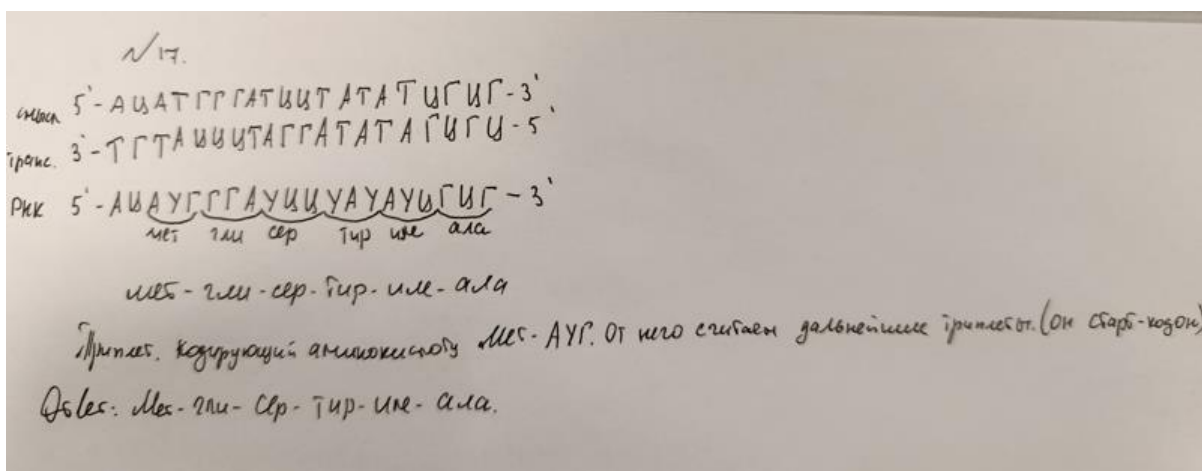 №17.
смысл 5'-АЦАТГГГАТЦЦТАТАТЦГЦГ-3'
транс. 3'-ТГТАЦЦЦТАГГАТАТАГЦГЦ-5'
РНК 5'-АЦАУГГГАУЦЦУАУАУЦГЦГ-3'
мет гли сер тир иле ала
мет-гли-сер-тир-иле-ала
Триплет, кодирующий аминокислоту Мет-АУГ. От него считаем дальнейшие триплеты. (он старт-кодон)
Ответ: Мет-гли-сер-тир-иле-ала.